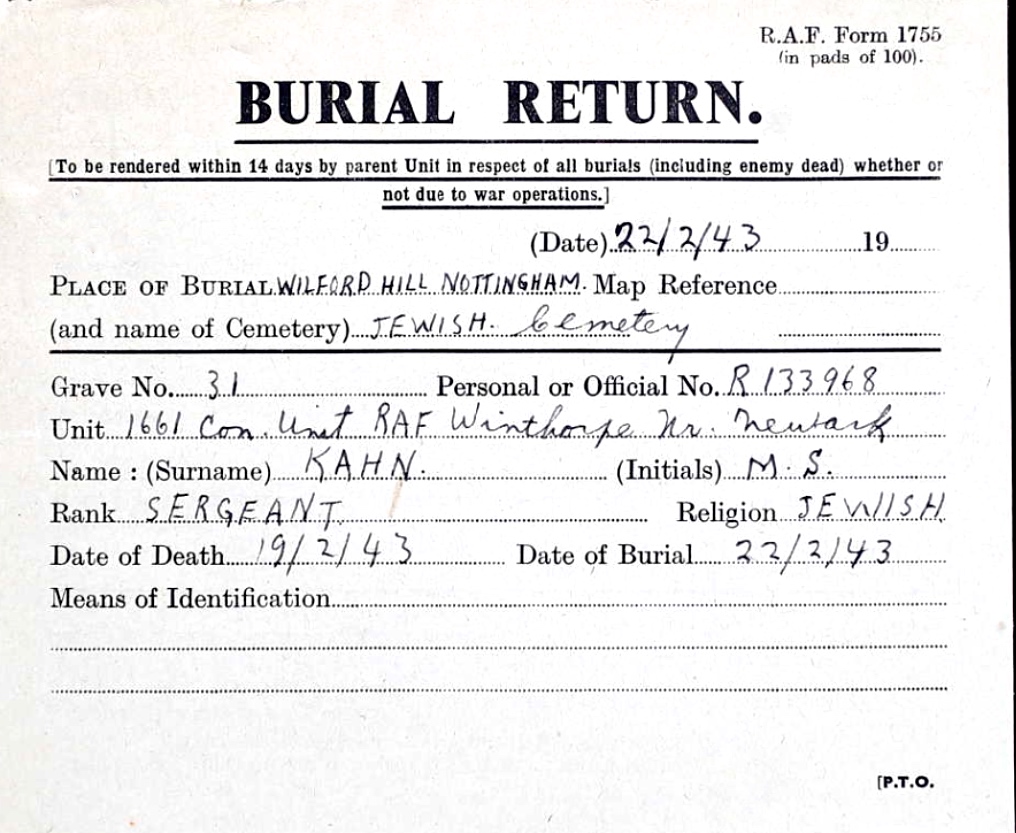 R.A.F. Form 1755
(in pads of 100).
BURIAL RETURN.
[To be rendered within 14 days by parent Unit in respect of all burials (including enemy dead) whether or
not due to war operations.]
(Date) 22/2/43 19
PLACE OF BURIAL WILFORD HILL NOTTINGHAM. Map Reference
(and name of Cemetery) JEWISH. Cemetery
Grave No. 31 Personal or Official No. R 133968
Unit 1661 Con. Unit RAF Winthorpe Nr. Newark
Name : (Surname) KAHN. (Initials) M. S.
Rank SERGEANT Religion JEWISH
Date of Death 19/2/43 Date of Burial 22/2/43
Means of Identification
[P.T.O.